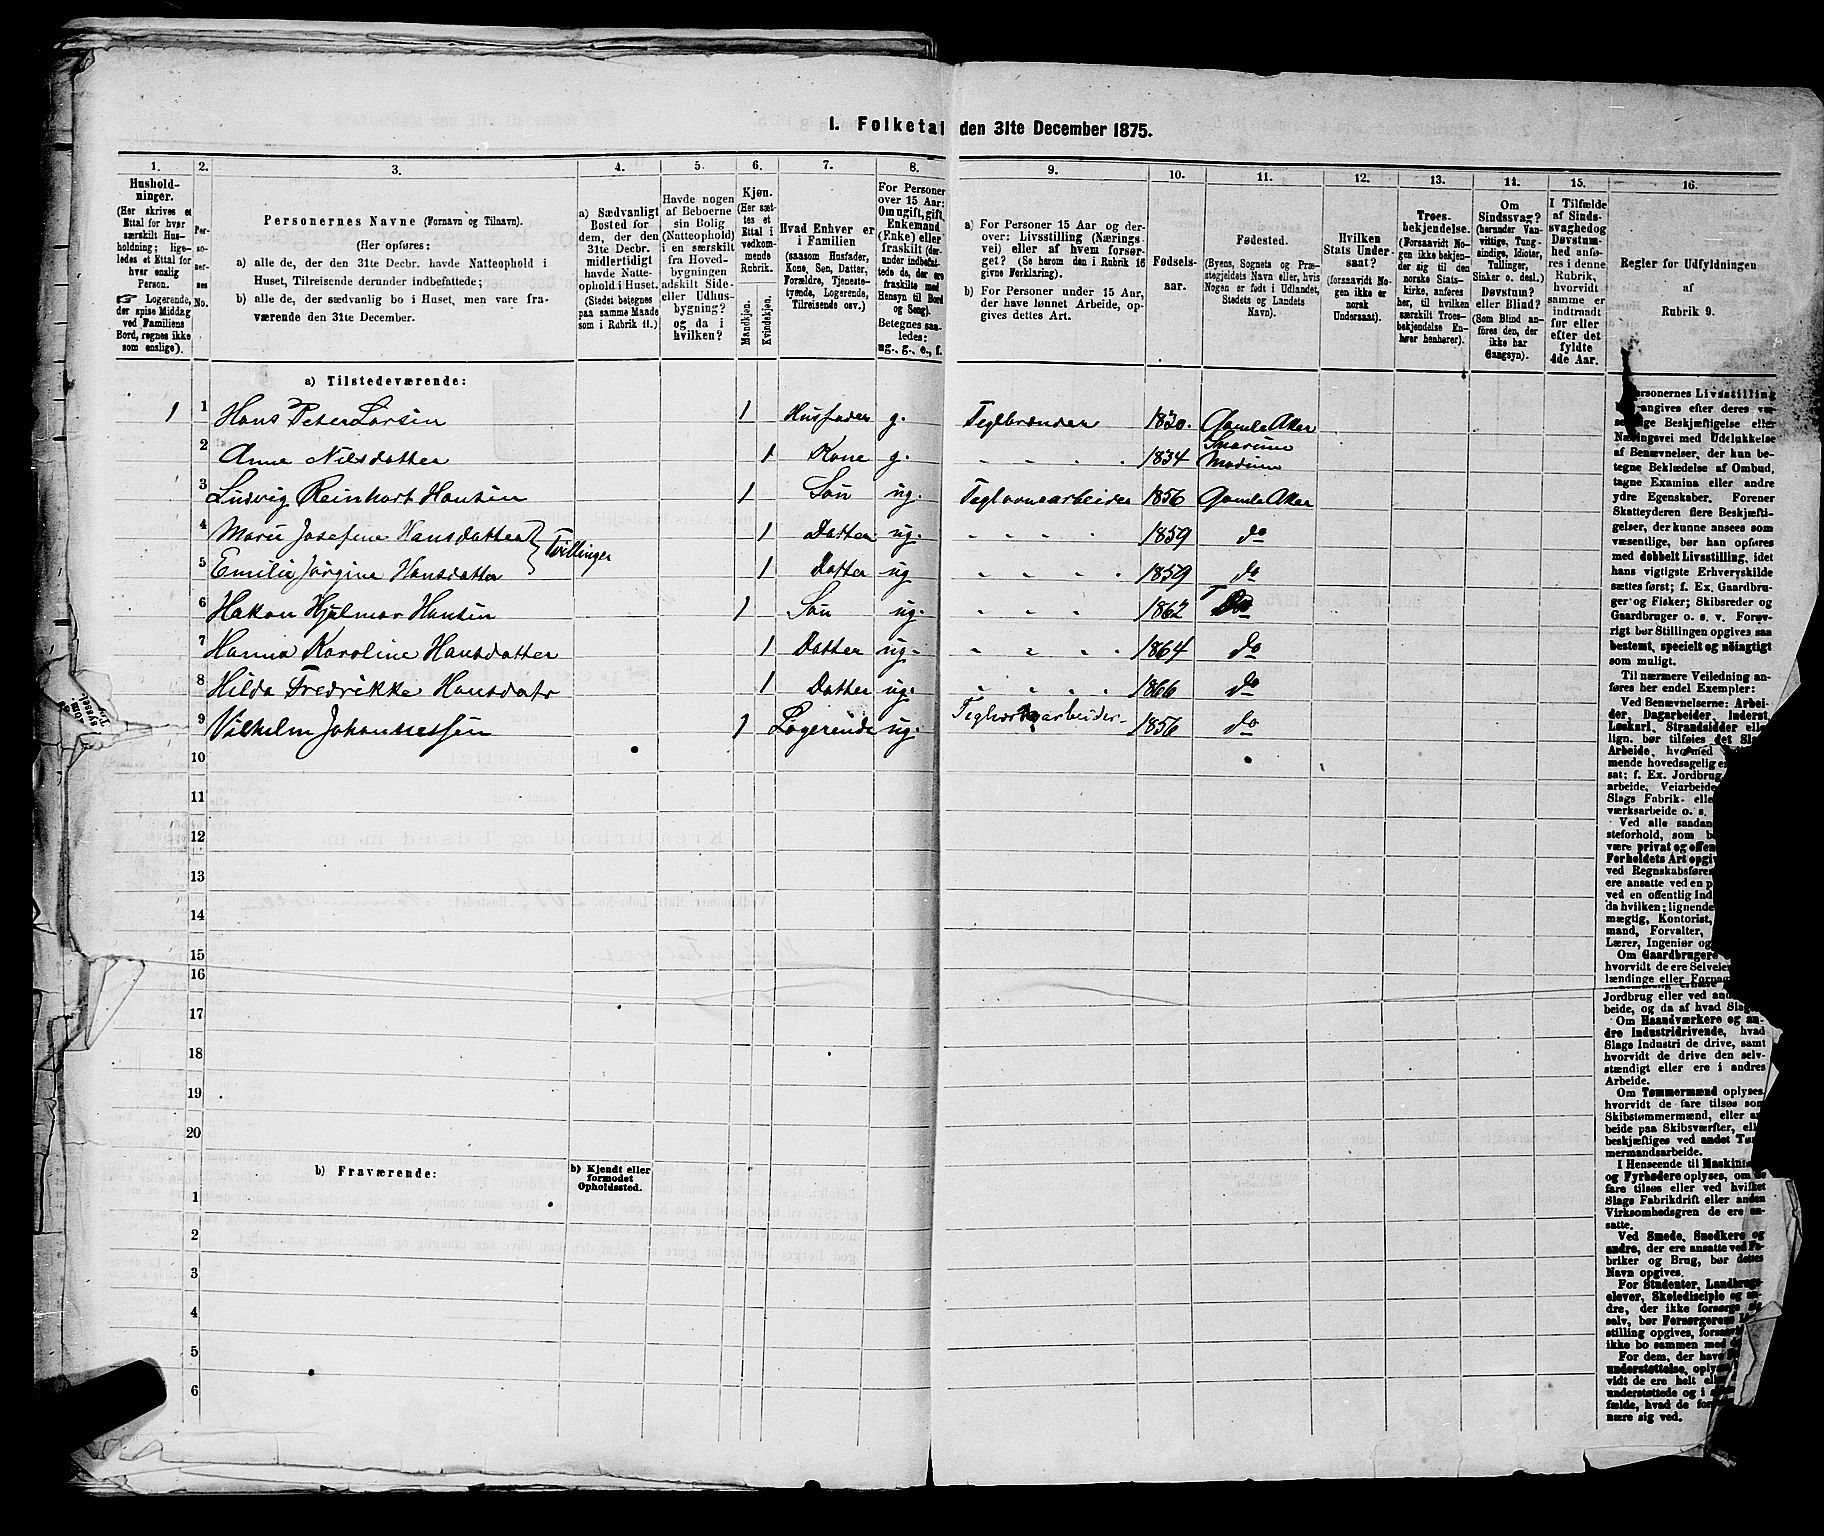 I. Folketal den 31te December 1875.
1. 2. 3. 4. 5. 6. 7. 8. 9. 10. 11. 12. 13. 14. 15. 16.
Hushold-
ninger.
(Her skrives et
Ettal for hver
særskilt Hus-
holdning; lige-
ledes et Ettal for
hver enslig
Person.
☞ Logerende,
der spise Middag
ved Familiens
Bord, regnes ikke
som enslige).
Per-
so-
ner-
nes
No.
Personernes Navne (Fornavn og Tilnavn).
(Her opføres:
a) alle de, der den 31te Decbr. havde Natteophold i
Huset, Tilreisende derunder indbefattede;
b) alle de, der sædvanlig bo i Huset, men vare fra-
værende den 31te December.
a) Sædvanligt
Bosted for
dem, der den
31te Decbr.
midlertidigt
havde Natte-
ophold i Huset.
(Stedet betegnes
paa samme Maade
som i Rubrik 11.)
Havde nogen
af Beboerne
sin Bolig
(Natteophold)
i en særskilt
fra Hoved-
bygningen
adskilt Side-
eller Udhus-
bygning?
og da i
hvilken?
Kjøn.
(Her sæt-
tes et
Ettal i
vedkom-
mende
Rubrik.
Mandkjøn.
Kvindekjøn.
Hvad Enhver er
i Familien
(saasom Husfader,
Kone, Søn, Datter,
Forældre, Tjeneste-
tyende, Logerende,
Tilreisende osv.)
For Personer
over 15 Aar:
Om ugift, gift,
Enkemand
(Enke) eller
fraskilt (der-
under indbefat-
tede de, der ere
fraskilte med
Hensyn til Bord
og Seng).
Betegnes saa-
ledes:
ug., g., e., f.
a) For Personer 15 Aar og der-
over: Livsstilling (Nærings-
vei) eller af hvem forsør-
get? (Se herom den i Rubrik 16
givne Forklaring).
b) For Personer under 15 Aar,
der have lønnet Arbeide, op-
gives dettes Art.
Fødsels-
aar.
Fødested.
(Byens, Sognets og Præ-
stegjeldets Navn eller, hvis
Nogen er født i Udlandet,
Stedets og Landets
Navn).
Hvilken
Stats Under-
saat?
(forsaavidt No-
gen ikke er
norsk
Undersaat).
Troes-
bekjendelse.
(Forsaavidt No-
gen ikke bekjen-
der sig til den
norske Stats-
kirke, anføres
her, til hvilken
særskilt Troes-
bekjendelse En-
hver henhører).
Om
Sindssvag?
(herunder Van-
vittige, Tung-
sindige, Idioter,
Tullinger,
Sinker o. desl.)
Døvstum?
eller Blind?
(Som Blind an-
føres den, der
ikke har
Gangsyn).
I Tilfælde
af Sinds-
svaghed og
Døvstum-
hed anfø-
res i denne
Rubrik,
hvorvidt
samme er
indtraadt
før eller
efter det
fyldte
4de Aar.
Regler for Udfyldningen
af
Rubrik 9.
a) Tilstedeværende:
1 1 Hans Peter Larsen 1 Husfader g. Teglbrænder 1830. Gamle Aker
2 Anne Nilsdatter 1 Kone g. " " " " 1834 Snarum Modum
3 Ludvig Reinhart Hansen 1 Søn ug. Teglovnsarbeider 1856 Gamle Aker
4 Marie Josefine Hansdatter } Tvillinger 1 Datter ug. " " " " 1859 do
5 Emilie Jørgine Hansdatter 1 Datter ug " " " " 1859 do
6 Hakon Hjalmar Hansen 1 Søn ug. " " " " 1862 Do
7 Hanna Karoline Hansdatter 1 Datter ug. " " " " 1864 do
8 Hilda Fredrikke Hansdatr 1 Datter ug. " " " " 1866 do
9 Vilhelm Johannessen 1 Logerende ug. Teglværksarbeider 1856 do
10
11
12
13
14
15
16
17
18
19
20
b) Fraværende:
b) Kjendt eller
formodet
Opholdssted.
1
2
3
4
5
6
ersonernes Livsstilling
angives efter deres væ-
sentlige Beskjæftigelse eller
Næringsvei med Udelukkelse
af Benævnelser, der kun be-
tegne Beklædelse af Ombud,
tagne Examina eller andre
ydre Egenskaber. Forener
Skatteyderen flere Beskjæfti-
gelser, der kunne ansees som
væsentlige, bør han opføres
med dobbelt Livsstilling, idet
hans vigtigste Erhvervskilde
sættes først; f. Ex. Gaardbru-
ger og Fisker; Skibsreder og
Gaardbruger o. s. v. Forøv-
rigt bør Stillingen opgives saa
bestemt, specielt og nøiagtigt
som muligt.
Til nærmere Veiledning an-
føres her endel Exempler:
Ved Benævnelserne: Arbei-
der, Dagarbeider, Inderst,
Løskarl, Strandsidder elle
lign. bør tilføies det Slag
Arbeide, hvormed
mende hovedsagelig e
sat; f. Ex. Jordbrug
arbeide, Veiarbeide
Slags Fabrik- elle
værksarbeide o. s.
Ved alle saadan
steforhold, som b
være privat og offen
Forholdets Art opgiv
ved Regnskabsføres
ere ansatte ved en p
ved en offentlig Ind
da hvilken; lignende
mægtig, Kontorist,
mand, Forvalter,
Lærer, Ingeniør og
Om Gaardbrugere
hvorvidt de ere Selveier
lændinge eller Forpag
Jordbrug eller ved and
beide, og da af hvad Slag
Om Haandværkere og an-
dre Industridrivende, hvad
Slags Industri de drive, samt
hvorvidt de drive den selv-
stændigt eller ere i andres
Arbeide.
Om Tømmermænd oplyses,
hvorvidt de fare tilsøs som
Skibstømmermænd, eller ar
beide paa Skibsværfter, ell
beskjæftiges ved andet Tøm
mermandsarbeide.
I Henseende til Maskinis
og Fyrbødere oplyses, om de
fare tilsøs eller ved hvilket
Slags Fabrikdrift eller anden
Virksomhedsgren de ere an-
satte.
Ved Smede, Snedkere og
andre, der ere ansatte ved Fa-
briker og Brug, bør dettes
Navn opgives.
For Studenter, Landbrugs-
elever, Skoledisciple og an-
dre, der ikke forsørge sig
selv, bør Forsørgerens Liv
stilling opgives, forsaav
ikke bo sammen med
For dem, der have
understøttelse, oplys
vidt de ere helt elle
understøttede og i
fælde, hvad de for
nære sig ved.